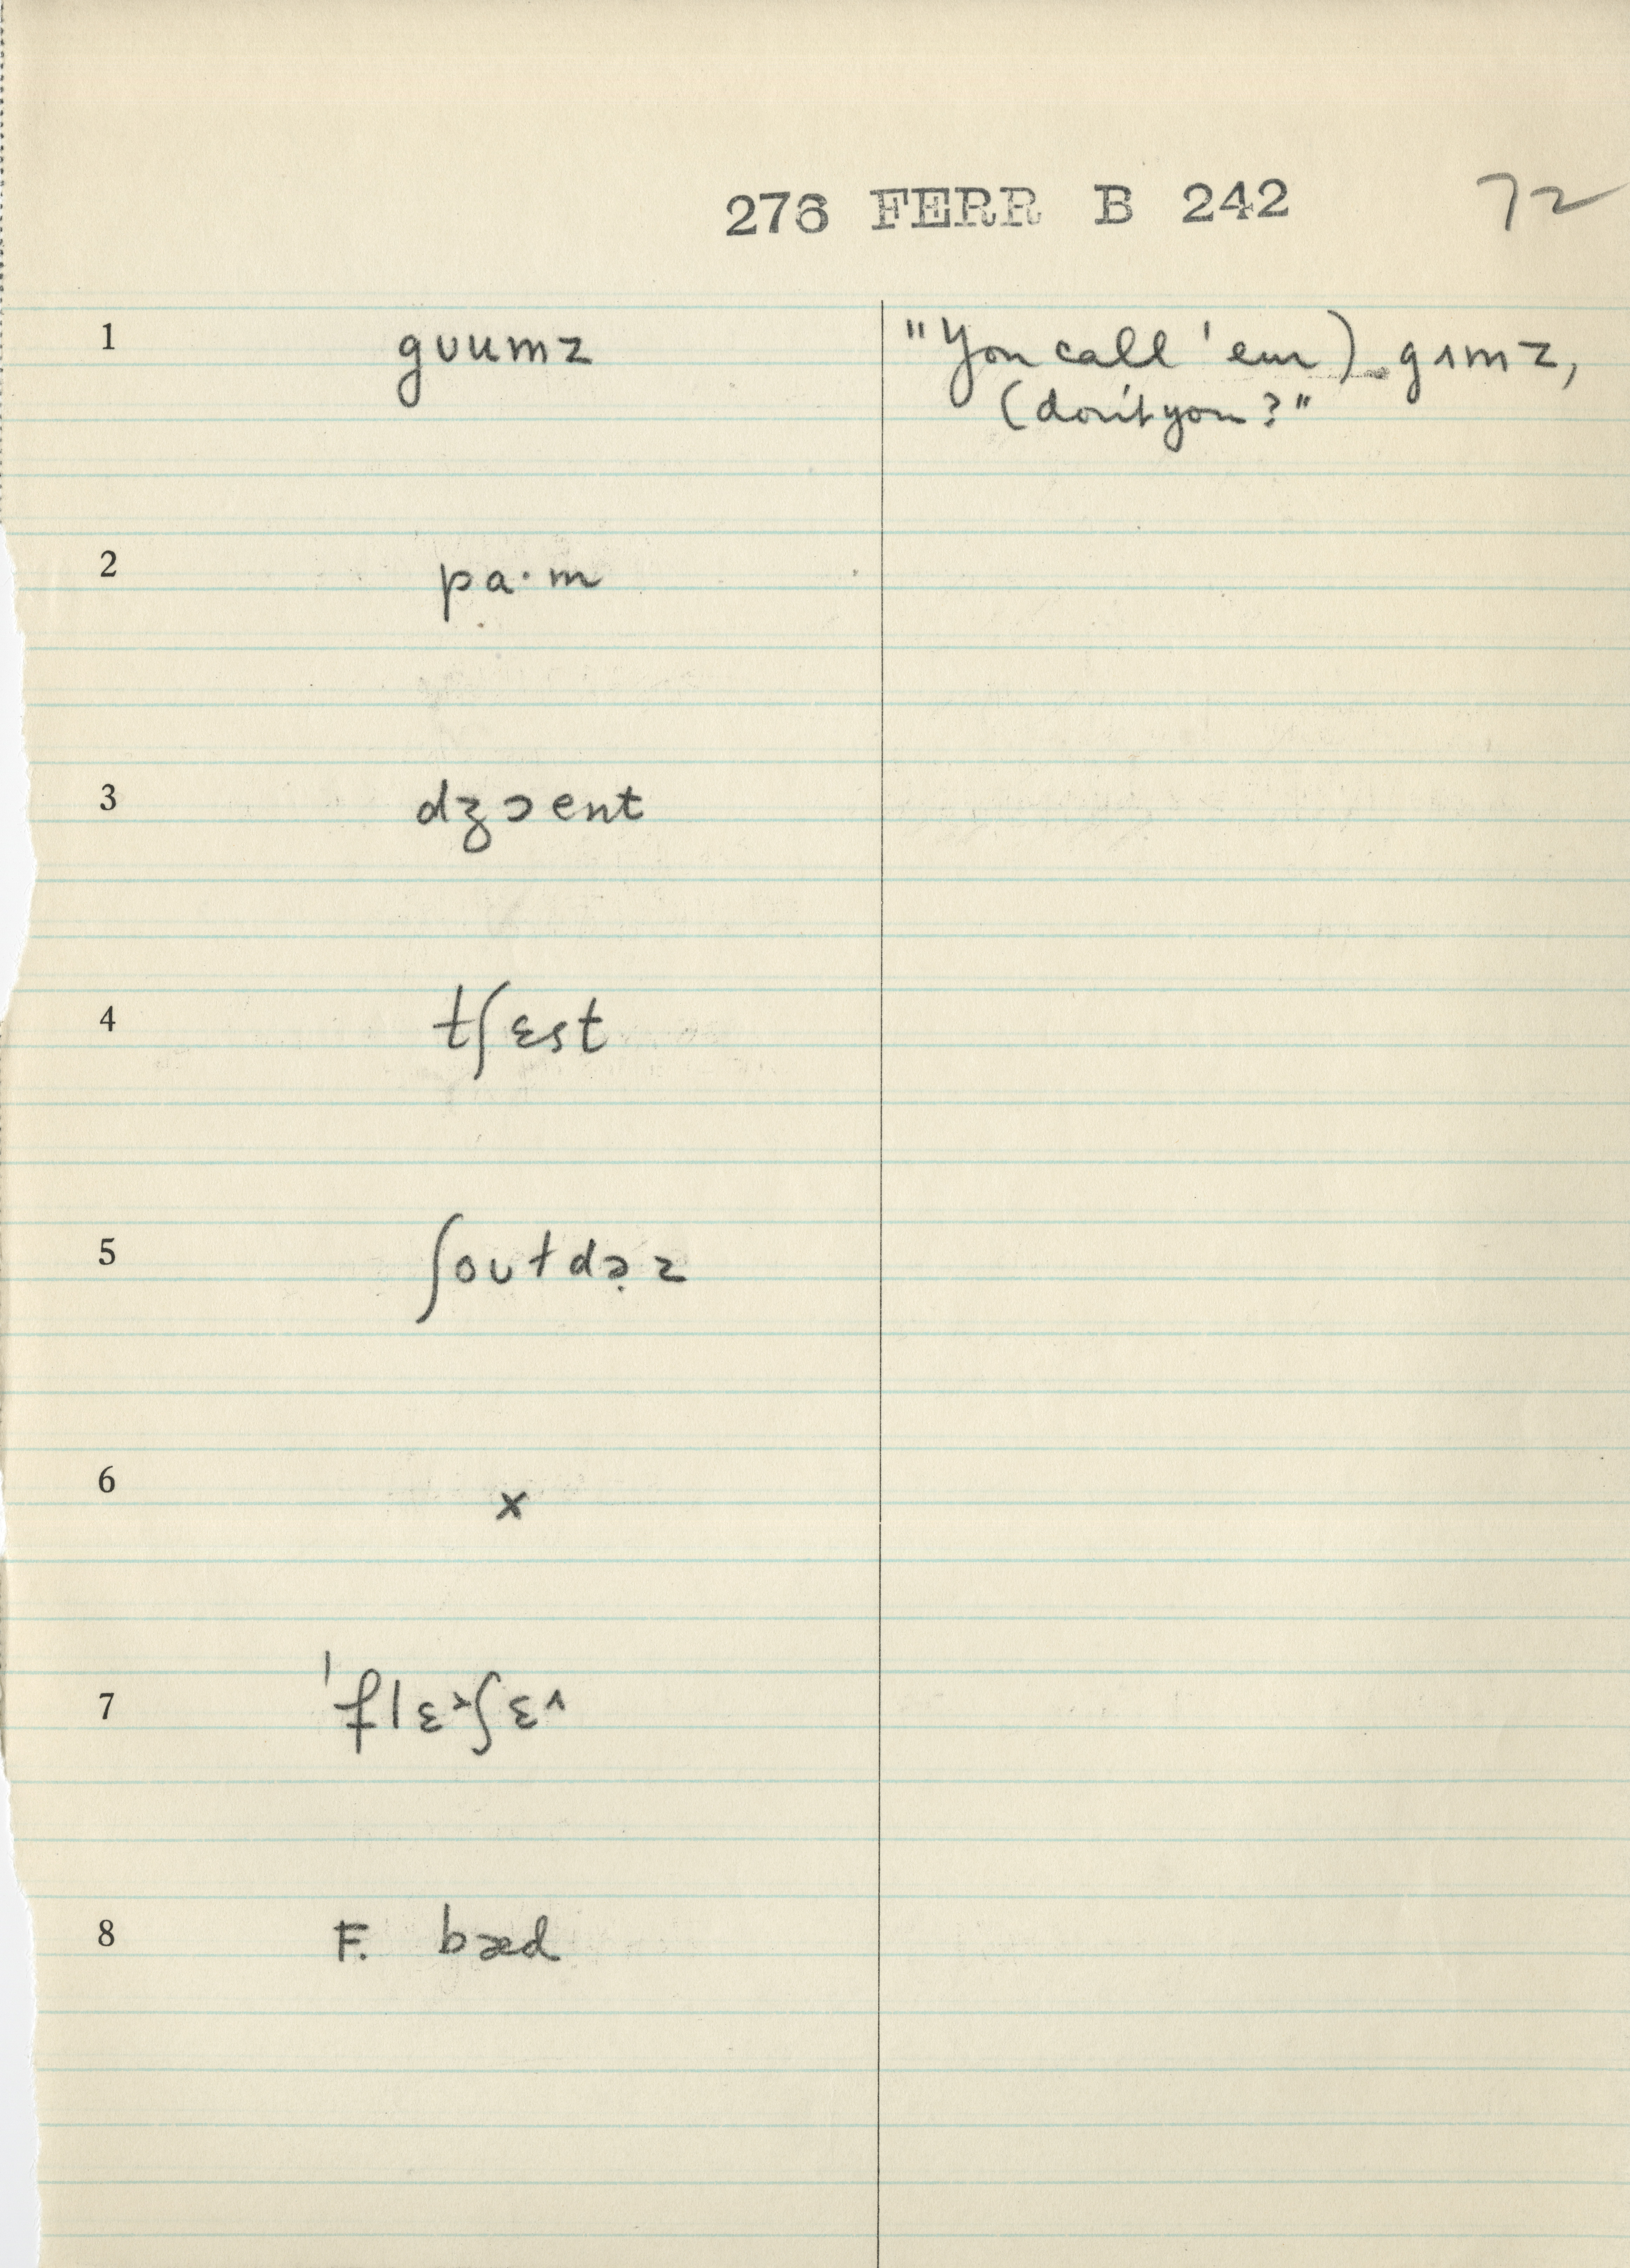 276 FERR B 242 72
1 gʊumz "You call 'em) gʌmz,
(don't you?"
2 pa·m
3 dʒɔent
4 tʃɛst
5 ʃoʊłdə̣z
6 x
7 'flɛ˃ʃɛ˄
8 F. bæd